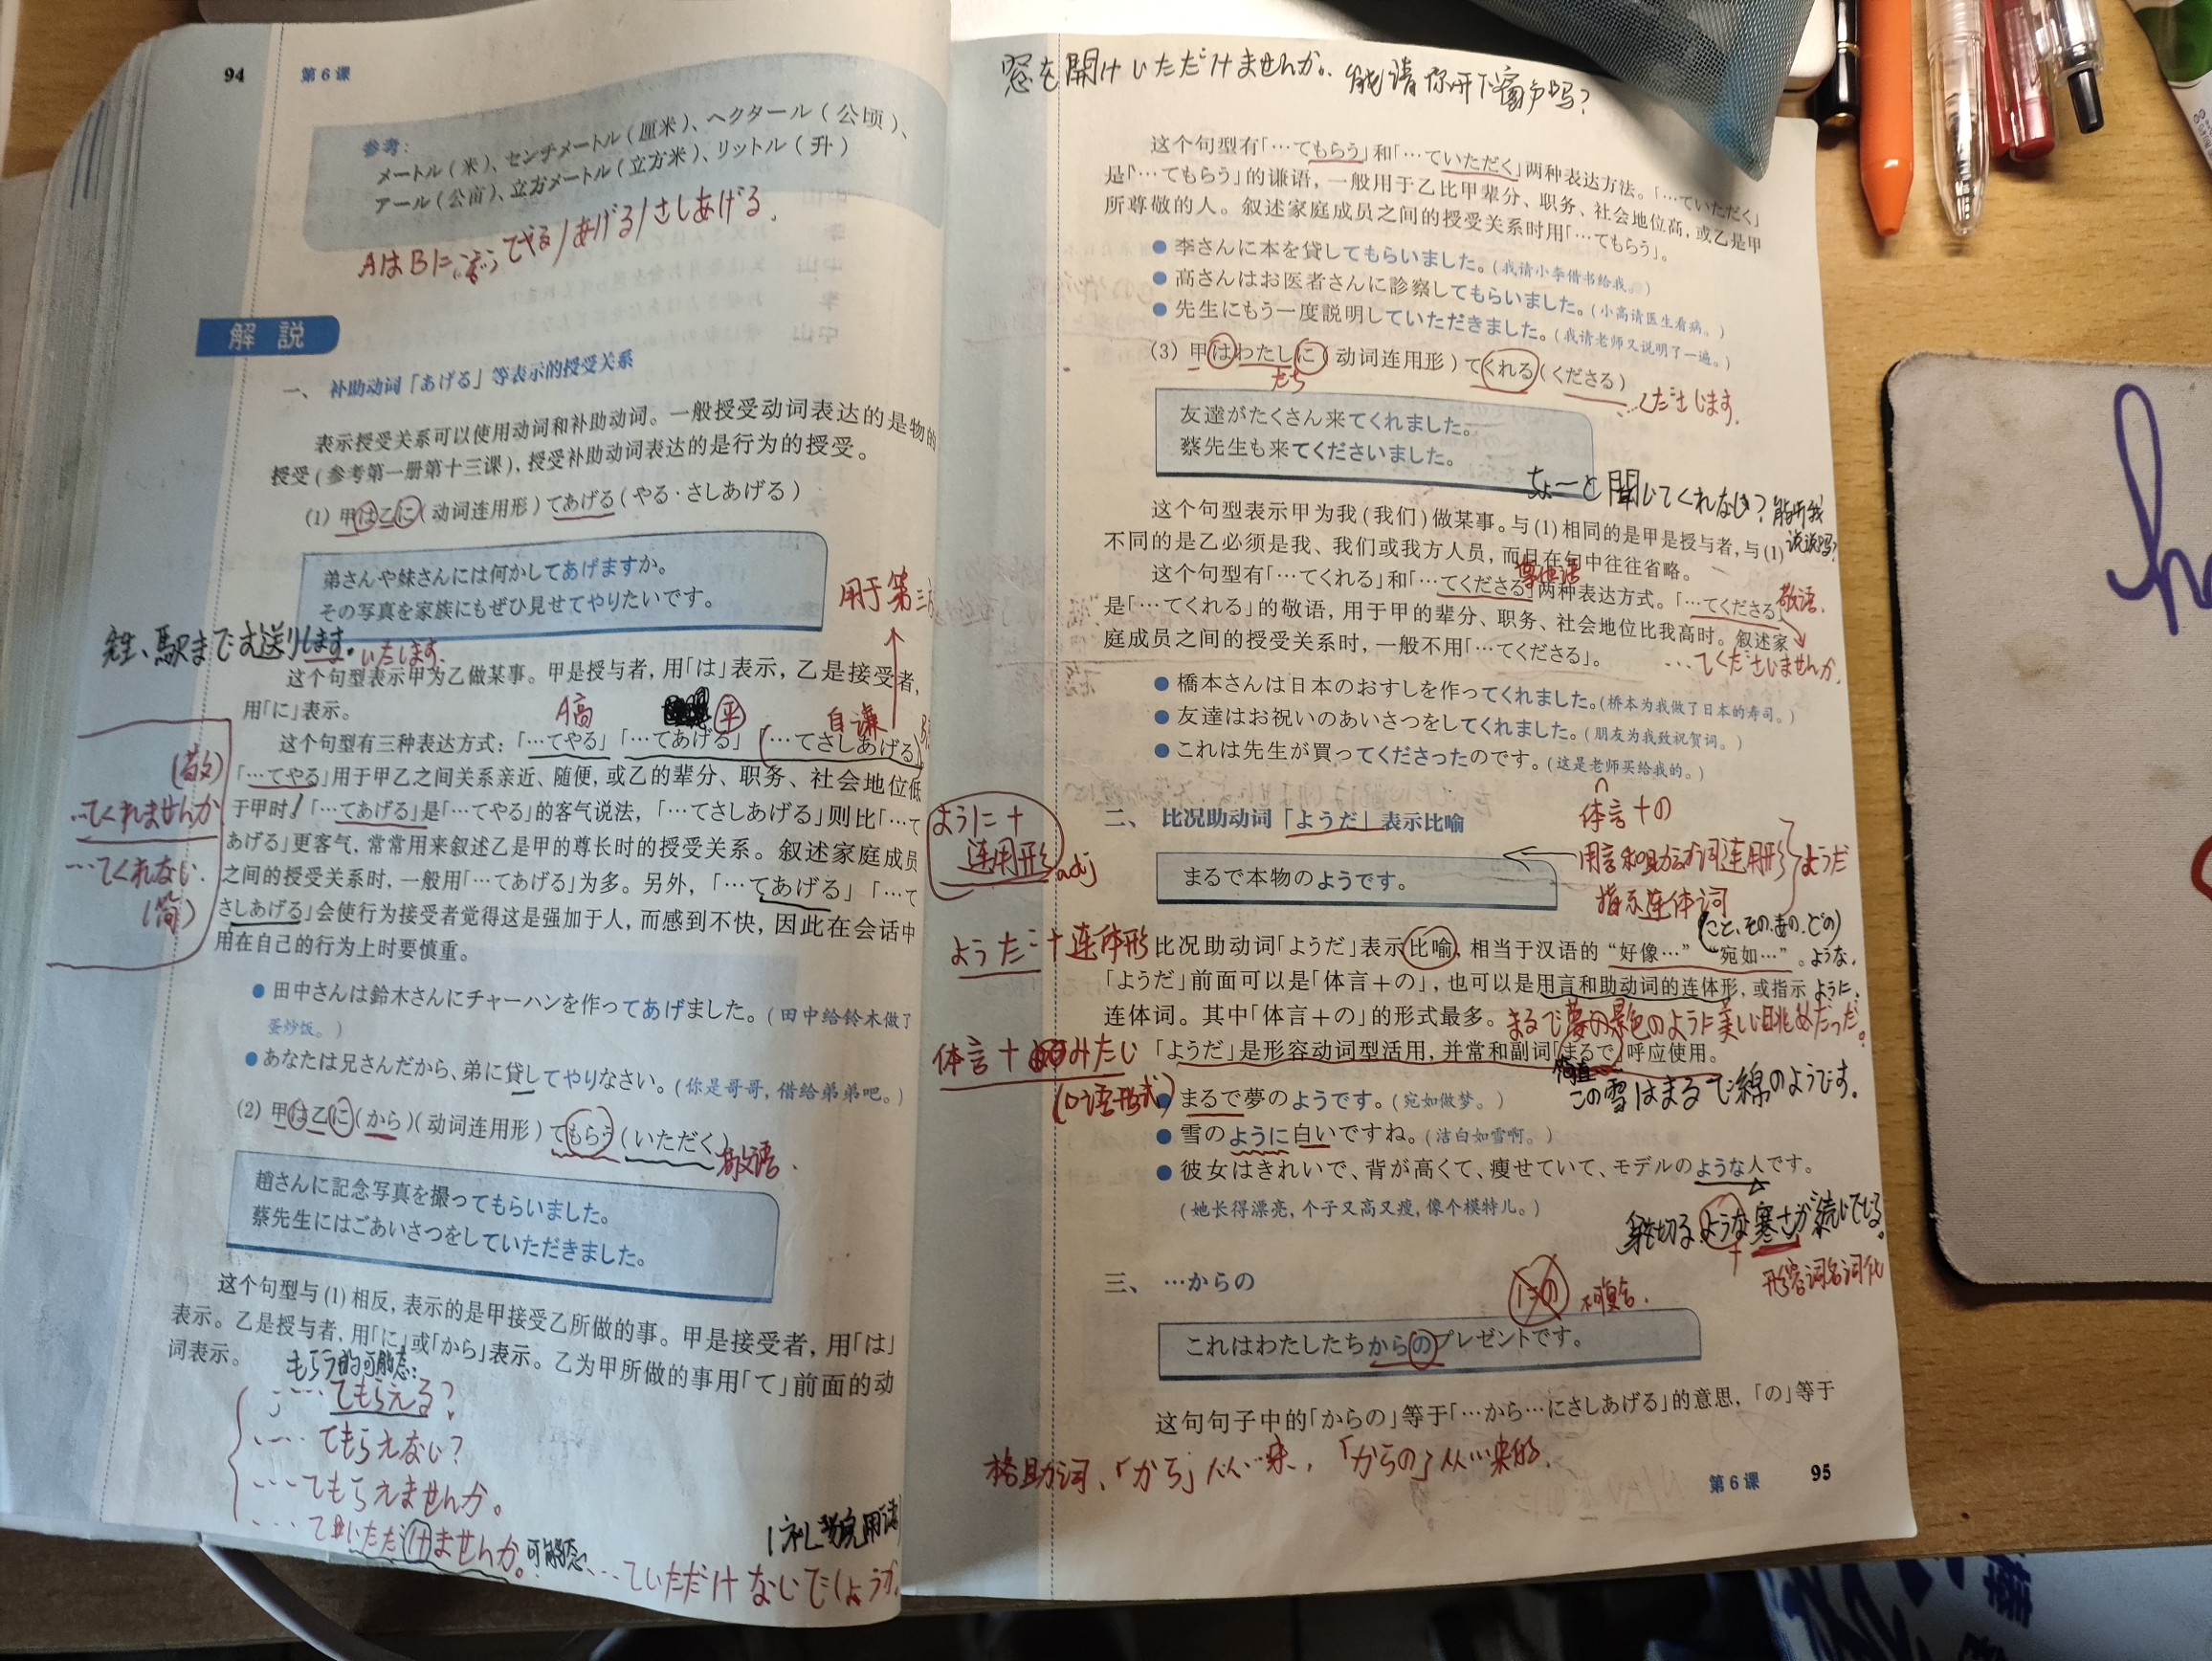 94 第6课
参考：
メートル（米）、センチメートル（厘米）、ヘクタール（公顷）、
アール（公亩）、立方メートル（立方米）、リットル（升）
AはBに、 てやる/あげる/さしあげる.
解説
一、 补助动词「あげる」等表示的授受关系
表示授受关系可以使用动词和补助动词。一般授受动词表达的是物的
授受（参考第一册第十三课），授受补助动词表达的是行为的授受。
（1）甲は乙に（动词连用形）てあげる（やる·さしあげる）
弟さんや妹さんには何かしてあげますか。
その写真を家族にもぜひ見せてやりたいです。
用于第三
駅までお送りします。
いたします.
这个句型表示甲为乙做某事。甲是授与者，用「は」表示，乙是接受者，
用「に」表示。
A高 平 自谦
这个句型有三种表达方式：「…てやる」「…てあげる」「…てさしあげる」
「…てやる」用于甲乙之间关系亲近、随便，或乙的辈分、职务、社会地位低
于甲时；「…てあげる」是「…てやる」的客气说法，「…てさしあげる」则比「…て
あげる」更客气，常常用来叙述乙是甲的尊长时的授受关系。叙述家庭成员
之间的授受关系时，一般用「…てあげる」为多。另外，「…てあげる」「…て
さしあげる」会使行为接受者觉得这是强加于人，而感到不快，因此在会话中
用在自己的行为上时要慎重。
(敬)
…てくれませんか
…てくれない.
(简)
● 田中さんは鈴木さんにチャーハンを作ってあげました。（田中给铃木做了
蛋炒饭。）
● あなたは兄さんだから、弟に貸してやりなさい。（你是哥哥，借给弟弟吧。）
（2）甲は乙に（から）（动词连用形）てもらう（いただく）
敬语.
趙さんに記念写真を撮ってもらいました。
蔡先生にはごあいさつをしていただきました。
这个句型与（1）相反，表示的是甲接受乙所做的事。甲是接受者，用「は」
表示。乙是授与者，用「に」或「から」表示。乙为甲所做的事用「て」前面的动
词表示。
もらう的可能态：
…… てもらえる？
…… てもらえない？
…… てもらえませんか。
…… ていただけませんか。可能态
……ていただけないでしょうか.
窓を開けいただけませんか。能请你开下窗户吗？
这个句型有「…てもらう」和「…ていただく」两种表达方法。「…ていただく」
是「…てもらう」的谦语，一般用于乙比甲辈分、职务、社会地位高，或乙是甲
所尊敬的人。叙述家庭成员之间的授受关系时用「…てもらう」。
● 李さんに本を貸してもらいました。（我请小李借书给我。）
● 高さんはお医者さんに診察してもらいました。（小高请医生看病。）
● 先生にもう一度説明していただきました。（我请老师又说明了一遍。）
（3）甲はわたしに（动词连用形）てくれる（くださる）
たち
くださします.
友達がたくさん来てくれました。
蔡先生も来てくださいました。
ちょーと聞いてくれない？能听我
说说吗？
这个句型表示甲为我（我们）做某事。与（1）相同的是甲是授与者，与（1）
不同的是乙必须是我、我们或我方人员，而且在句中往往省略。
这个句型有「…てくれる」和「…てくださる」两种表达方式。「…てくださる」
敬语.
是「…てくれる」的敬语，用于甲的辈分、职务、社会地位比我高时。叙述家
庭成员之间的授受关系时，一般不用「…てくださる」。
…てくださいませんか.
● 橋本さんは日本のおすしを作ってくれました。（桥本为我做了日本的寿司。）
● 友達はお祝いのあいさつをしてくれました。（朋友为我致祝贺词。）
● これは先生が買ってくださったのです。（这是老师买给我的。）
二、 比况助动词「ようだ」表示比喻
ように+
连用形 adj
体言+の
用言和助动词连用形
指示连体词
ようだ
まるで本物のようです。
(この、その、あの、どの)
ようだ+连体形
比况助动词「ようだ」表示比喻，相当于汉语的“好像…”“宛如…”。
ような.
「ようだ」前面可以是「体言＋の」，也可以是用言和助动词的连体形，或指示
ように.
连体词。其中「体言＋の」的形式最多。
まるで夢の景色のように美しい眺めだった。
体言+みたい
(口语形式)
「ようだ」是形容动词型活用，并常和副词「まるで」呼应使用。
この雪はまるで綿のようです。
● まるで夢のようです。（宛如做梦。）
● 雪のように白いですね。（洁白如雪啊。）
● 彼女はきれいで、背が高くて、痩せていて、モデルのような人です。
（她长得漂亮，个子又高又瘦，像个模特儿。）
身を切るような寒さが続いている。
形容词名词化
三、 …からの
にの
これはわたしたちからのプレゼントです。
这句句子中的「からの」等于「…から…にさしあげる」的意思，「の」等于
格助词、「から」从…来，「からの」从…来的.
第6课 95